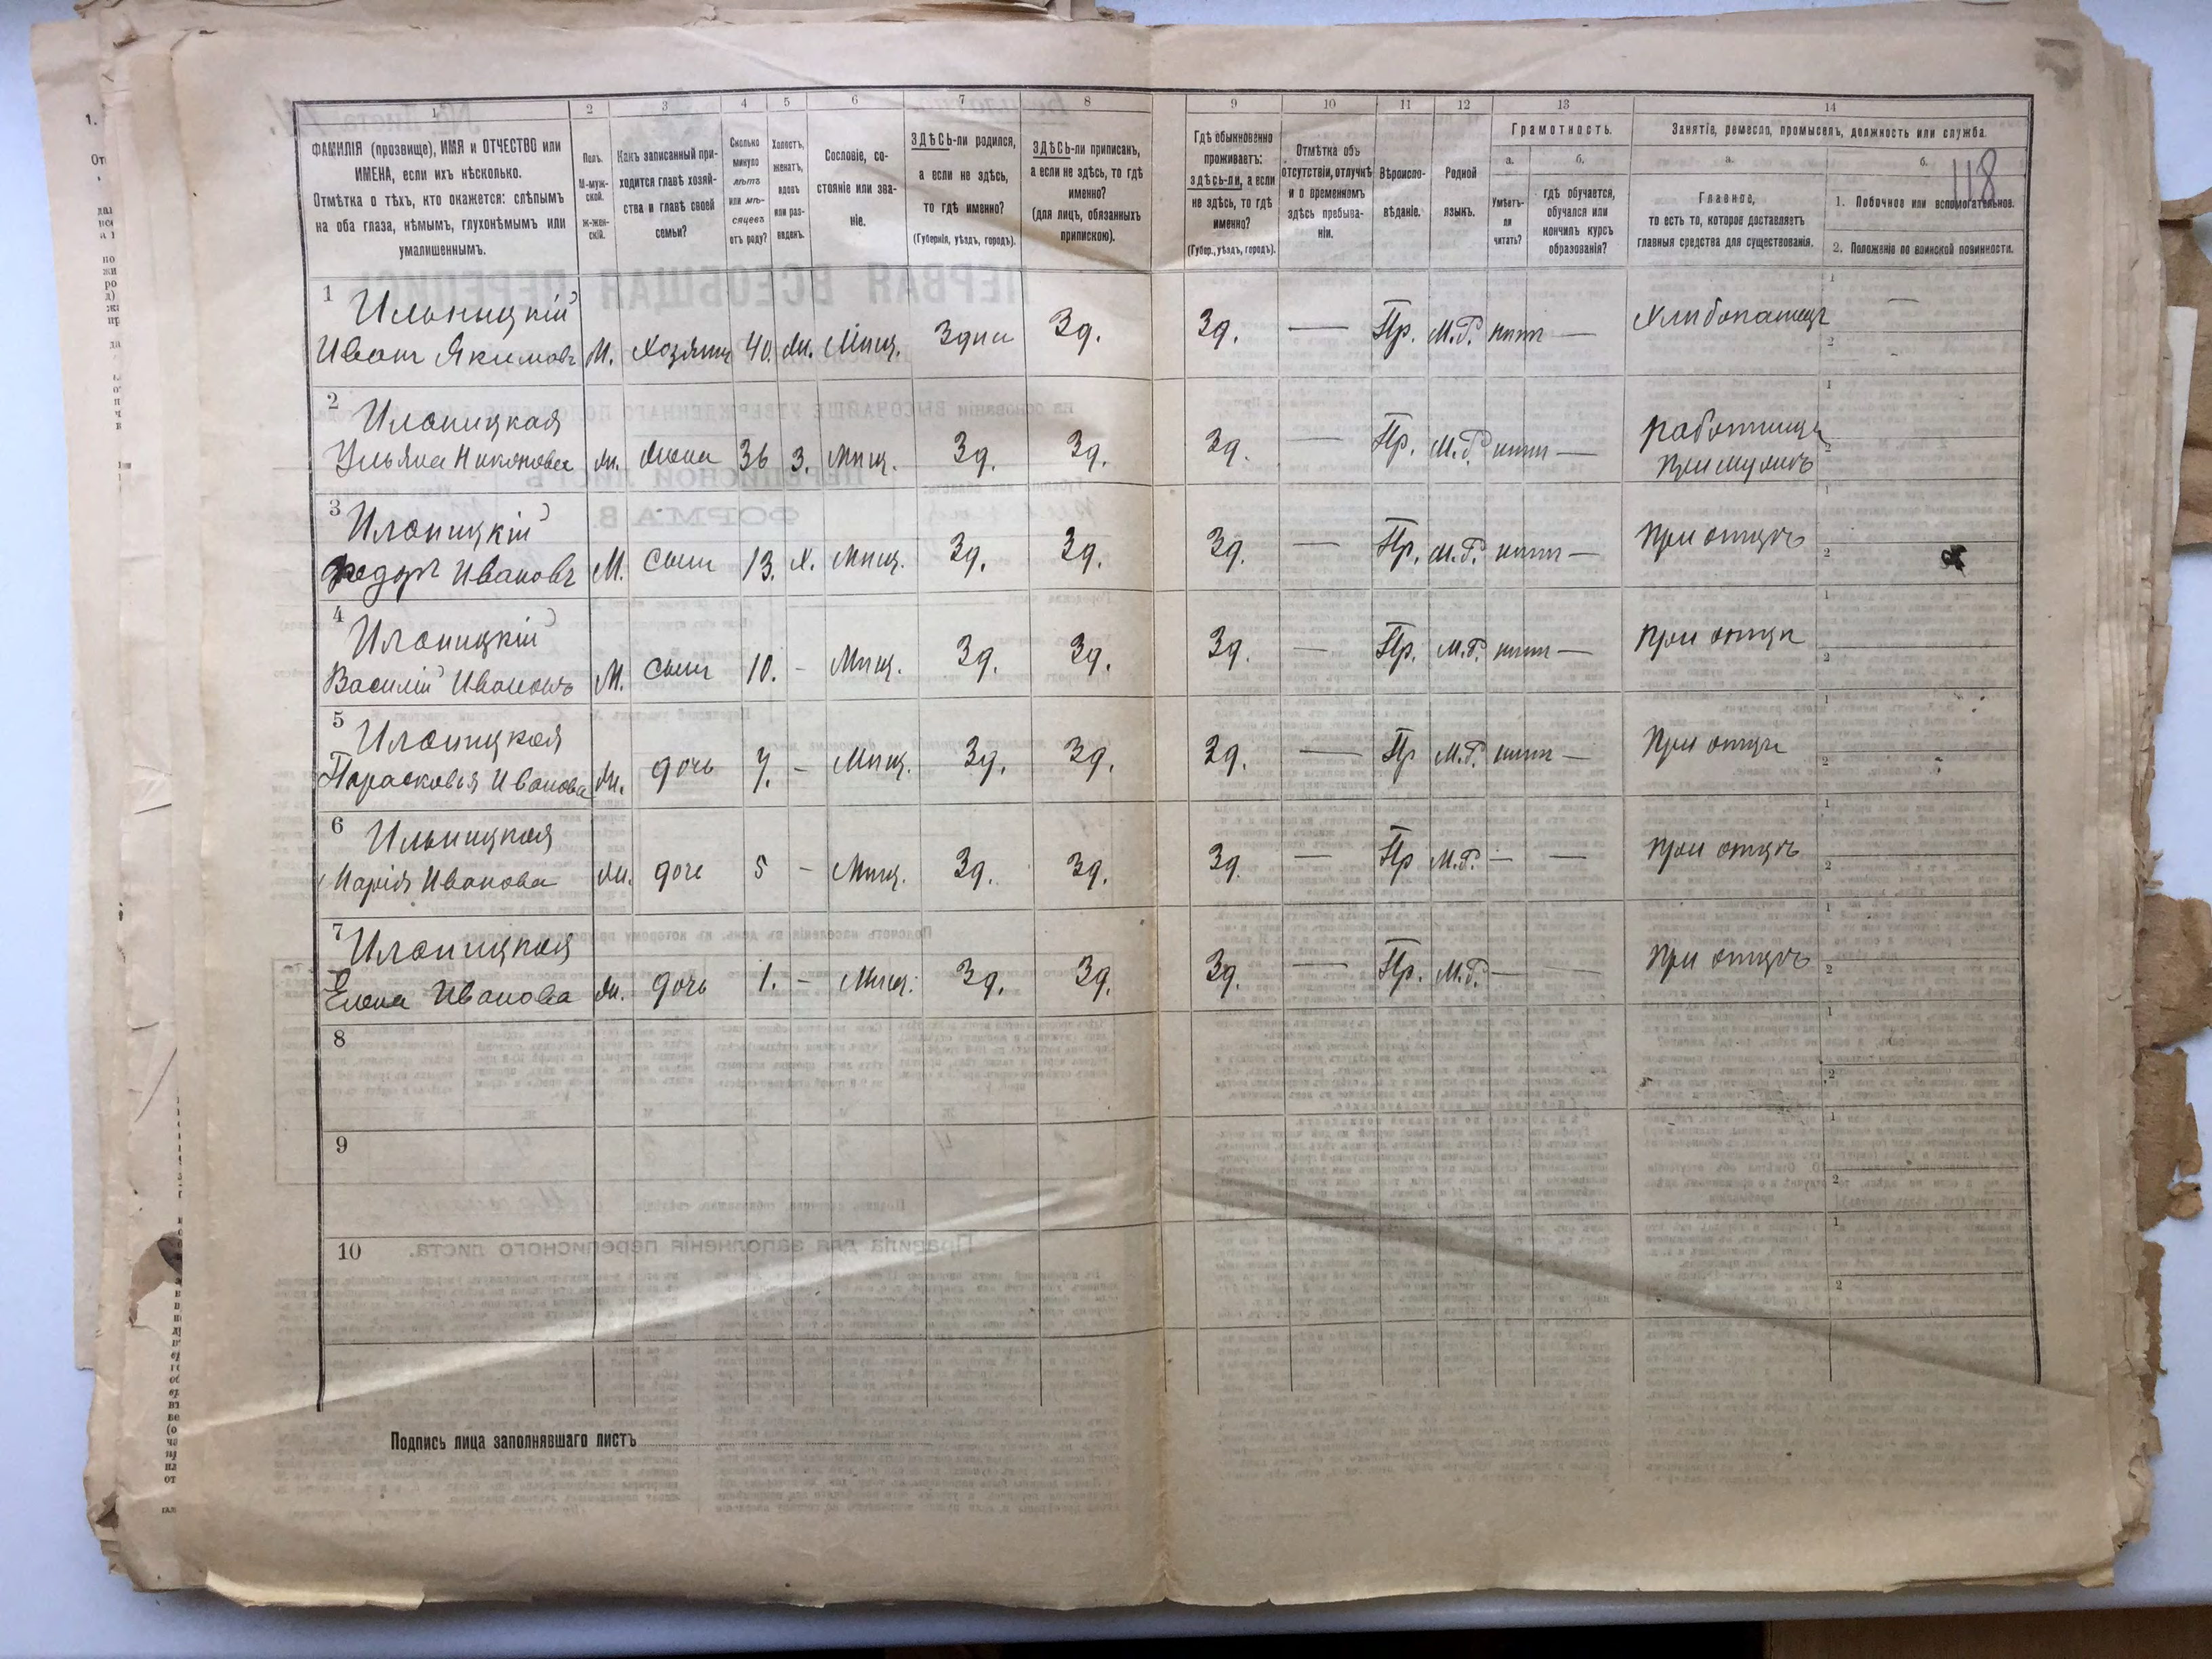 1 2 3 4 5 6 7 8 9 10 11 12 13 14
ФАМИЛІЯ (прозвище), ИМЯ и ОТЧЕСТВО или
ИМЕНА, если ихъ нѣсколько.
Отмѣтка о тѣхъ, кто окажется: слѣпымъ
на оба глаза, нѣмымъ, глухонѣмымъ или
умалишеннымъ.
Полъ.
М-муж-
ской.
Ж-жен-
скій.
Какъ записанный при-
ходится главѣ хозяй-
ства и главѣ своей
семьи?
Сколько
минуло
лѣтъ
или мѣ-
сяцевъ
отъ роду?
Холостъ,
женатъ,
вдовъ
или раз-
веденъ.
Сословіе, со-
стояніе или зва-
ніе.
ЗДѢСЬ-ли родился,
а если не здѣсь,
то гдѣ именно?
(Губернія, уѣздъ, городъ).
ЗДѢСЬ-ли приписанъ,
а если не здѣсь, то гдѣ
именно?
(для лицъ, обязанныхъ
припискою).
Гдѣ обыкновенно
проживаетъ:
здѣсь-ли, а если
не здѣсь, то гдѣ
именно?
(Губер., уѣздъ, городъ).
Отмѣтка объ
отсутствіи, отлучкѣ
и о временномъ
здѣсь пребыва-
ніи.
Вѣроиспо-
вѣданіе.
Родной
языкъ.
Грамотность.
а.
Умѣетъ-
ли
читать?
б.
гдѣ обучается,
обучался или
кончилъ курсъ
образованія?
Занятіе, ремесло, промыселъ, должность или служба.
а.
Главное,
то есть то, которое доставляетъ
главныя средства для существованія.
б.
118
1. Побочное или вспомогательное.
2. Положеніе по воинской повинности.
1 Ильницкій
Иванъ Якимовъ М. Хозяинъ 40. Ж. Мѣщ. Здѣсь Зд. Зд. — Пр. М.Р. нѣтъ — Хлибопашецъ —
2 Ильницкая
Ульяна Никонова Ж. Жена 36 З. Мѣщ. Зд. Зд. Зд. — Пр. М.Р. нѣтъ — работница
при мужѣ
3 Ильницкій
Федоръ Ивановъ М. Сынъ 13. Х. Мѣщ. Зд. Зд. Зд. — Пр. М.Р. нѣтъ — При отцѣ
4 Ильницкій
Василій Ивановъ М. Сынъ 10. - Мѣщ. Зд. Зд. Зд. — Пр. М.Р. нѣтъ — При отцѣ
5 Ильницкая
Парасковья Иванова Ж. дочь 7. - Мѣщ. Зд. Зд. Зд. — Пр М.Р. нѣтъ — При отцѣ
6 Ильницкая
Марія Иванова Ж. дочь 5 - Мѣщ. Зд. Зд. Зд. — Пр М.Р. — — При отцѣ
7 Ильницкая
Елена Иванова Ж. дочь 1. - Мѣщ. Зд. Зд. Зд. — Пр. М.Р. — — При отцѣ
8
9
10
Подпись лица заполнявшаго листъ